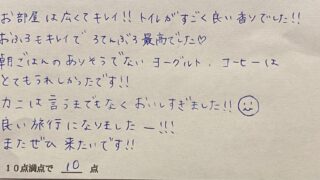 お部屋は広くてキレイ!! トイレがすごく良い香りでした!!
おふろもキレイで ろてんぶろ最高でした♡
朝ごはんのありそうでない ヨーグルト、コーヒーは
とてもうれしかったです!!
カニは言うまでもなくおいしすぎました!!
良い旅行になりましたー!!!
またぜひ来たいです!!
10点満点で 10 点